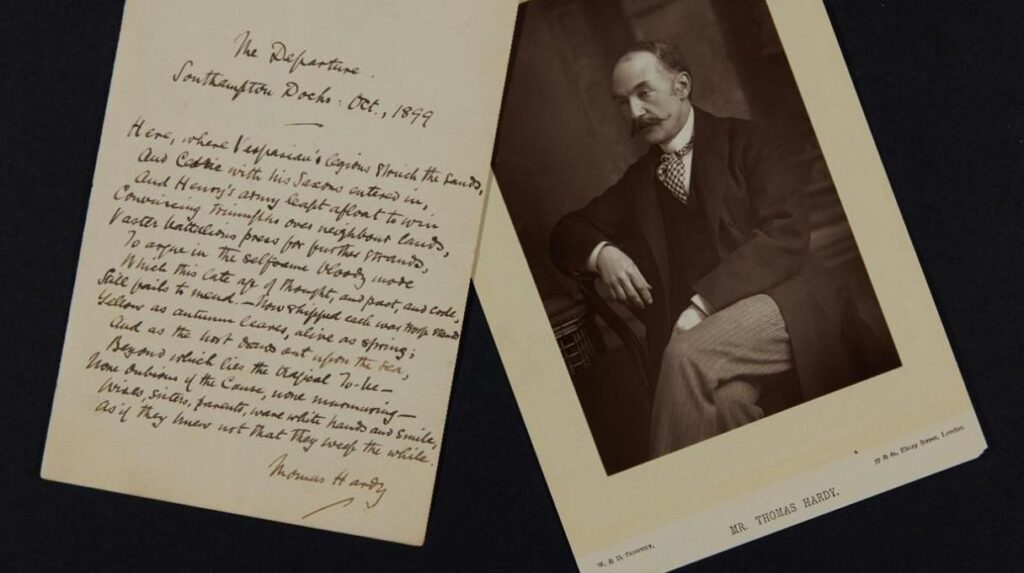 The Departure.
Southampton Docks: Oct., 1899
Here, where Vespasian's legions struck the sands,
And Cerdic with his Saxons entered in,
And Henry's army leapt afloat to win
Convincing triumphs over neighbour lands,
Vaster battalions press for further strands,
To argue in the selfsame bloody mode
Which this late age of thought, and pact, and code,
Still fails to mend. — Now shipped each
Yellow as autumn leaves, alive as spring;
And as the host draws out upon the sea,
Beyond which lies the tragical To-be —
None dubious of the Cause, none murmuring —
Wives, sisters, parents, wave white hands and smile,
As if they knew not that they weep the while.
Thomas Hardy
W. & D. DOWNEY,
57 & 61, Ebury Street, London.
MR. THOMAS HARDY.